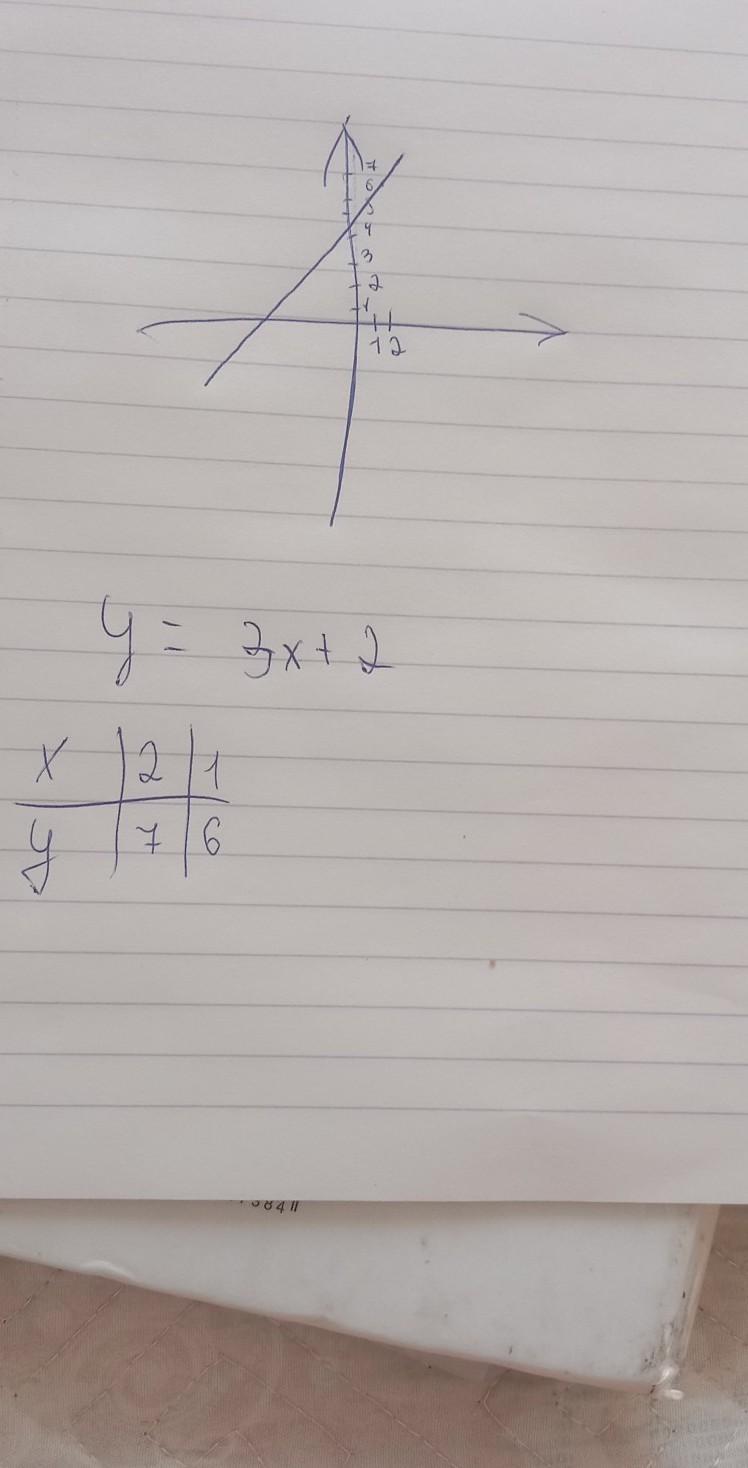 7
6
5
4
3
2
1
1 2
y = 3x + 2
x | 2 | 1
y | 7 | 6